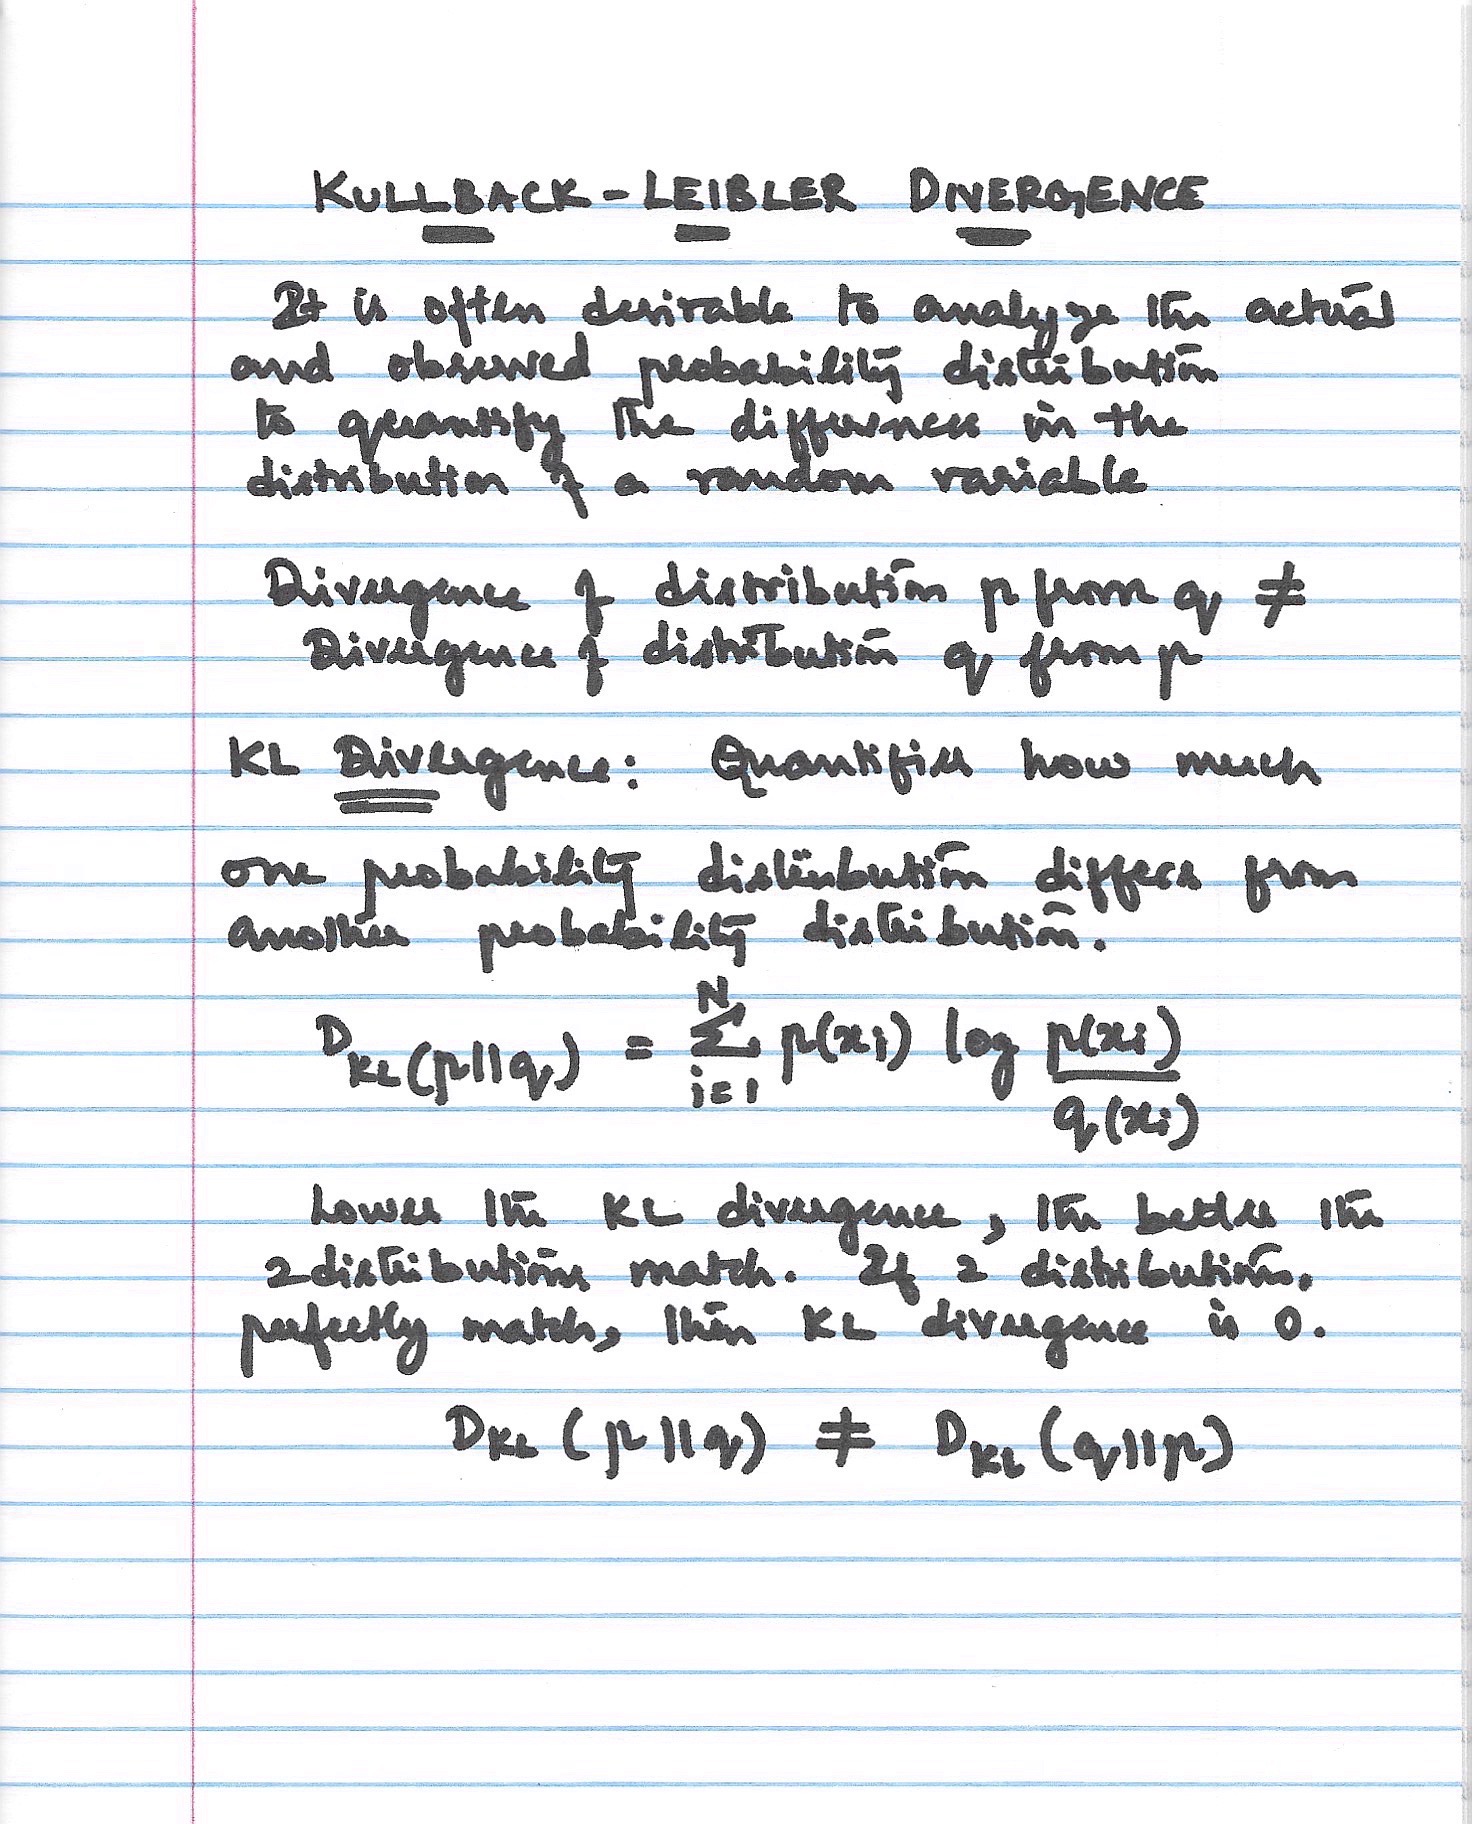 KULLBACK-LEIBLER DIVERGENCE
It is often desirable to analyze the actual
and observed probability distribution
to quantify the differences in the
distribution of a random variable
Divergence of distribution p from q ≠
Divergence of distribution q from p
KL Divergence: Quantifies how much
one probability distribution differs from
another probability distribution.
D_KL(p||q) = ∑_{i=1}^{N} p(xi) log p(xi)/q(xi)
Lower the KL divergence, the better the
2 distributions match. If 2 distributions.
perfectly match, then KL divergence is 0.
D_KL(p||q) ≠ D_KL(q||p)